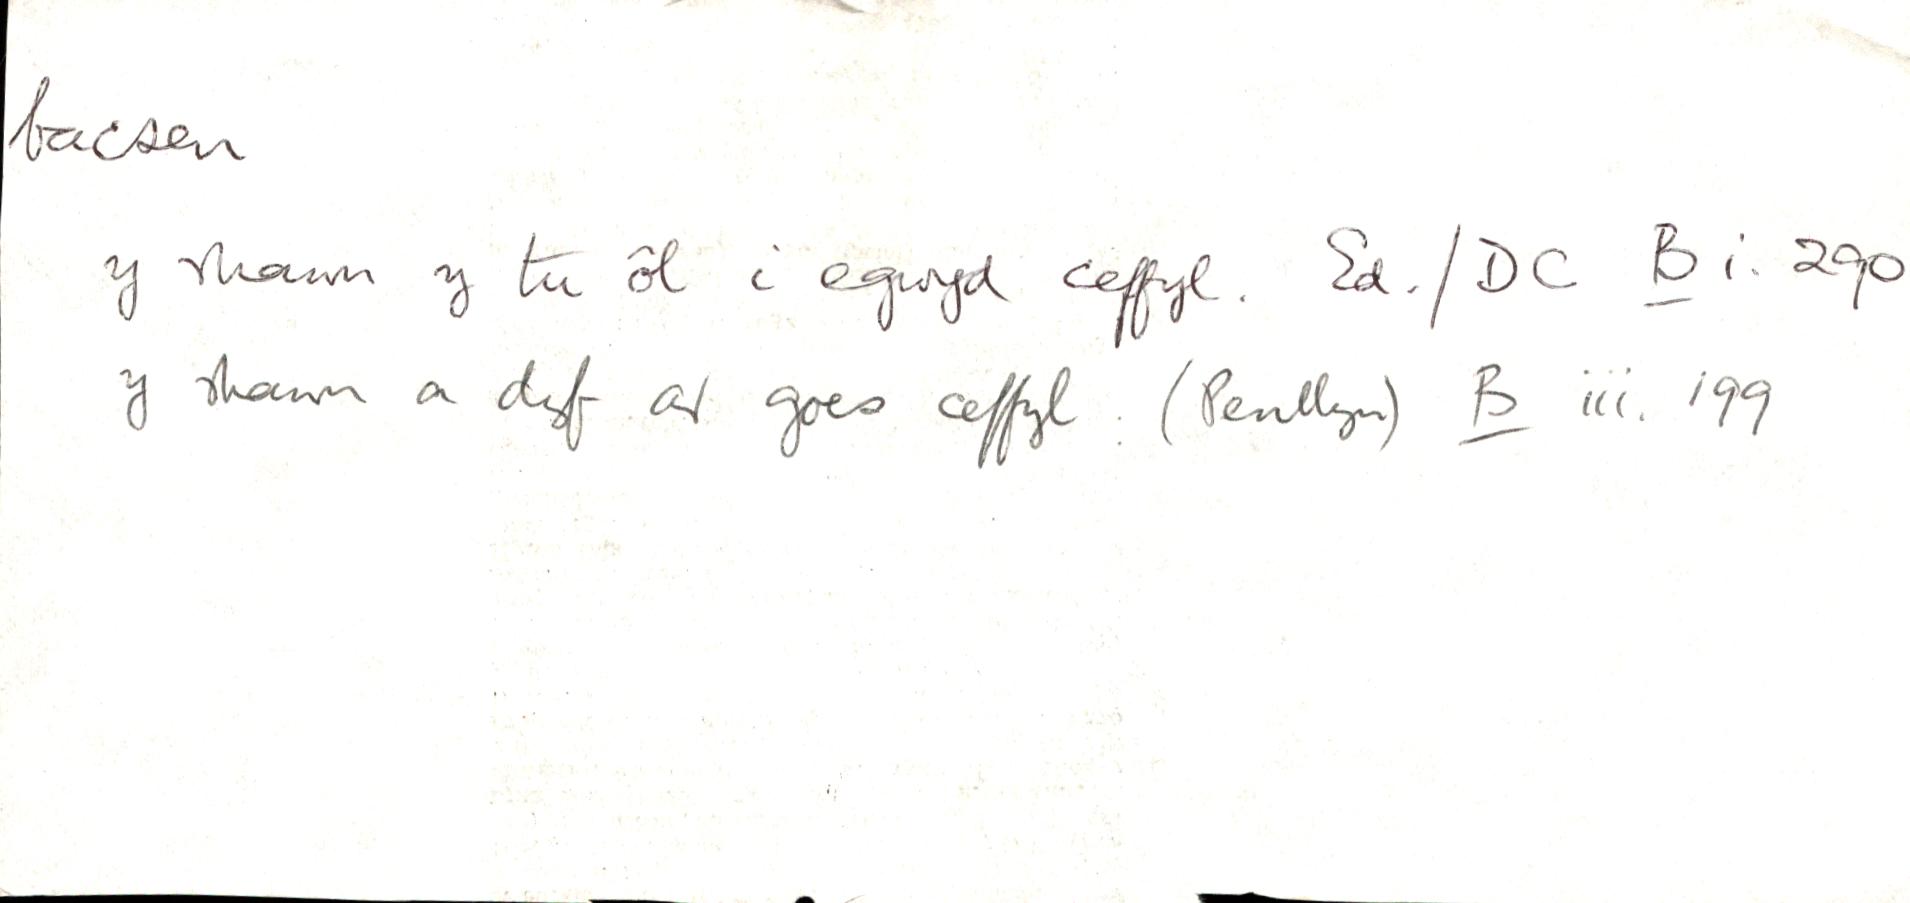 bacsen
y rhawn y tu ôl i egwyd ceffyl. Ed./DC B i. 290
y rhawn a dyf ar goes ceffyl. (Penllyn) B iii. 199